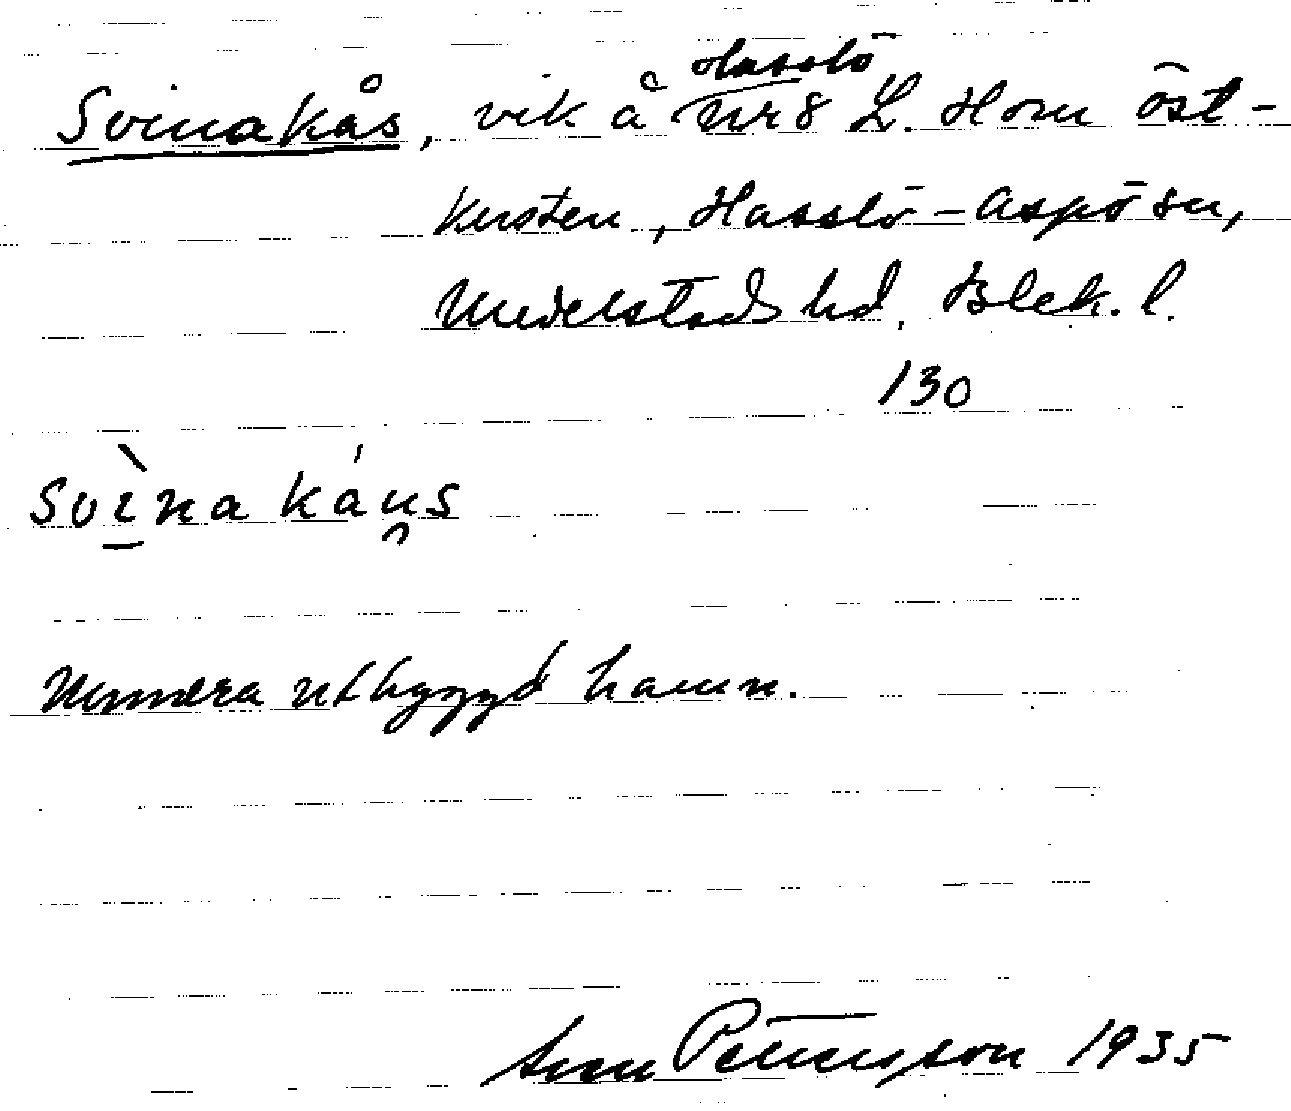 Hasslö
Svinakås, vik å Nr 8 L. Horn öst-
kusten, Hasslö-Aspö sn,
Medelstads hd, Blek. l.
130
svìnakáu̯s
Numera utbyggd hamn.
Sven Pettersson 1935